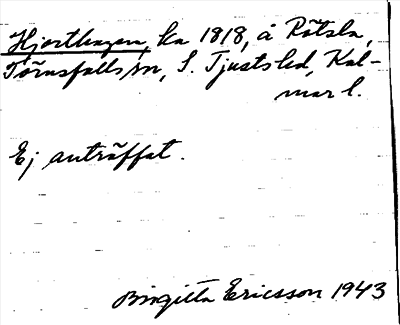 Hjorthagen, ka 1818, å Rötsla,
Törnsfalls sn, S. Tjusts hd, Kal-
mar l.
Ej anträffat.
Birgitta Ericsson 1943